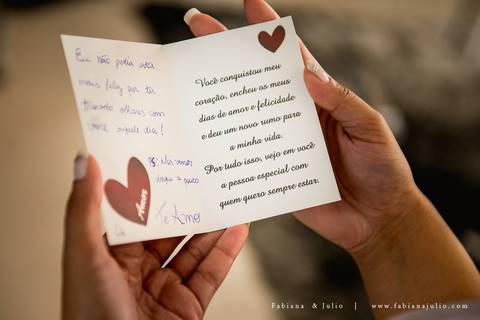 Eu não podia está
mais feliz por ter
trocado olhares com
você aquele dia!
PS: Nos vemos
daqui a pouco
Te Amo
Amor
Você conquistou meu
coração, encheu os meus
dias de amor e felicidade
e deu um novo rumo para
a minha vida.
Por tudo isso, vejo em você
a pessoa especial com
quem quero sempre estar.
Fabiana & Julio | www.fabianajulio.com